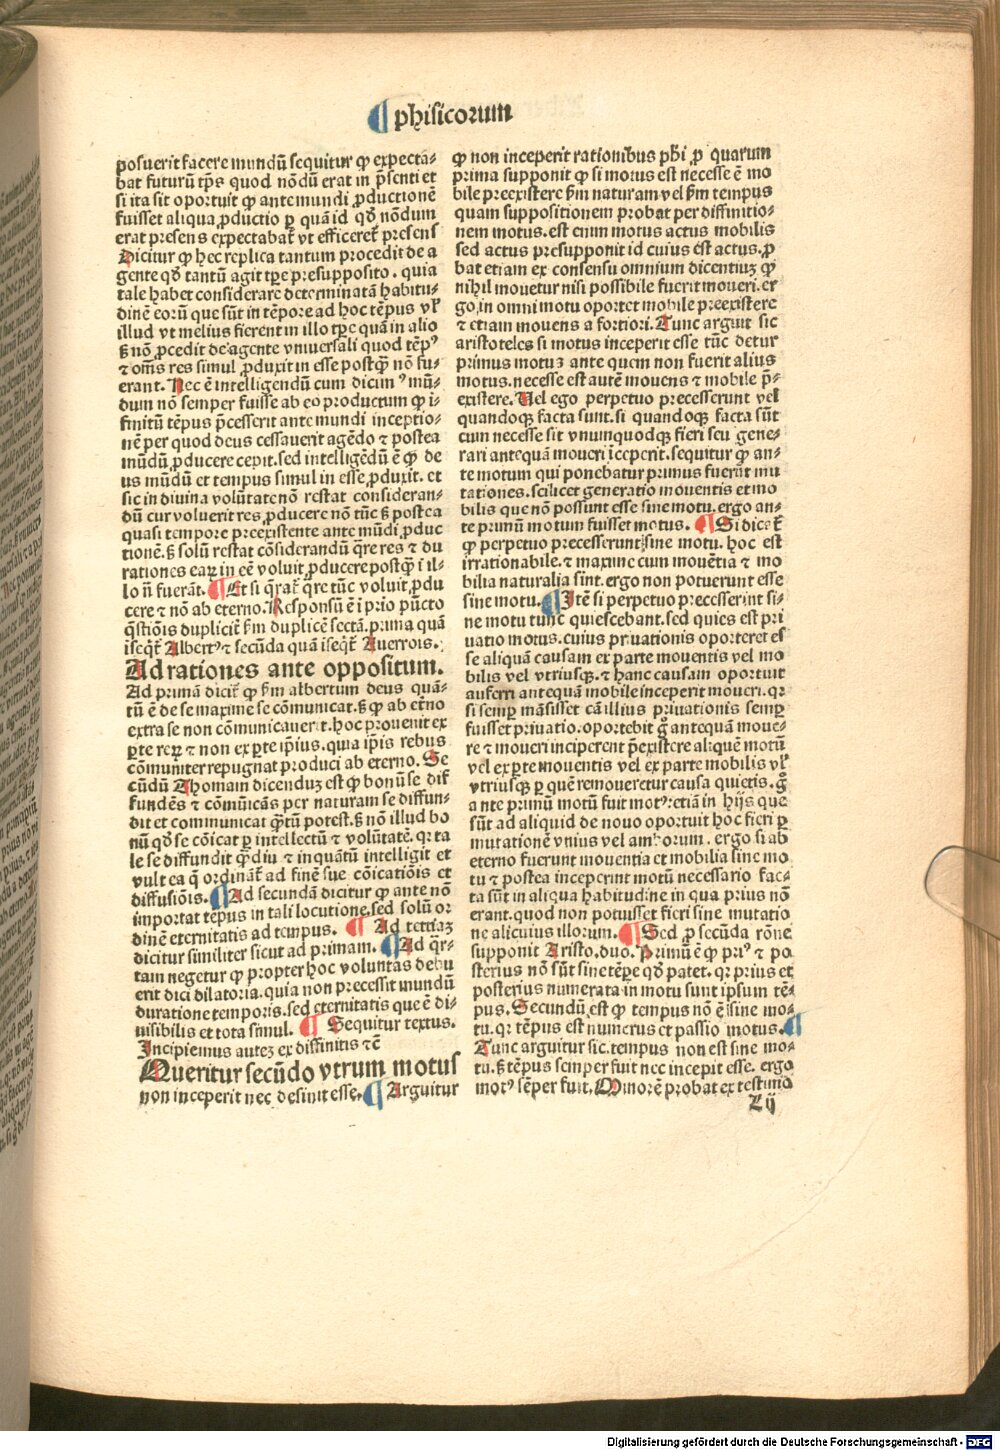 ¶ phisicorum
posuerit facere mundū sequitur ꝙ expecta⸗
bat futurū tp̄s quod nōdū erat in p̄senti et
si ita sit oportuit ꝙ ante mundi ꝓductionē
fuisset aliqua ꝓductio ꝑ quā id qd̄ nōdum
erat presens expectabat᷑ vt efficeret᷑ presens
Dicitur ꝙ hec replica tantum procedit de a
gente qd̄ tantū agit tp̄e presupposito. quia
tale habet considerare determinatā habitu⸗
dinē eorū que sūt in tēpore ad hoc tēpus vl̓
illud vt melius fierent in illo tp̄e quā in alio
ß nō ꝓcedit de agente vniuersali quod tēpꝰ
⁊ om̄s res simul ꝓduxit in esse postꝙ̄ nō fu⸗
erant. Nec ē intelligendū cum dicimꝰ mū⸗
dum nō semper fuisse ab eo productum ꝙ i⸗
finitū tēpus p̄cesserit ante mundi inceptio⸗
nē per quod deus cessauerit agēdo ⁊ postea
mūdū ꝓducere cepit. sed intelligēdū ē ꝙ de
us mūdū et tempus simul in esse ꝓduxit. et
sic in diuina volūtate nō restat consideran⸗
dū cur voluerit res ꝓducere nō tūc ß postea
quasi tempore preexistente ante mūdi ꝓduc
tionē. ß solū restat cōsiderandū q̄re res ⁊ du
rationes eaꝝ in eē voluit ꝓducere postꝙ̄ i il⸗
lo n̄ fuerāt. ¶ Et si q̄rat᷑ q̄re tūc voluit ꝓdu
cere ⁊ nō ab eterno. Responsū ē i prio pūcto
q̄stiōis duplicit᷑ ẜm duplicē sectā. prima quā
iseqt᷑ Albertꝰ ⁊ secūda quā iseqt᷑ Auerrois.
Ad rationes ante oppositum.
Ad primā dicit᷑ ꝙ ẜm albertum deus quā⸗
tū ē de se maxime se cōmunicat. ß ꝙ ab et̓no
extra se non cōmunicauerit. hoc prouenit ex
ꝑte reꝝ ⁊ non ex ꝑte ip̄ius. quia ip̄is rebus
cōmuniter repugnat produci ab eterno. Se
cūdū Thomam dicenduꝫ est ꝙ bonū se dif
fundēs ⁊ cōmūicās per naturam se diffun⸗
dit et communicat ꝙ̄tū potest. ß nō illud bo
nū qd̄ se cōicat ꝑ intellectū ⁊ volūtatē. qꝛ ta
le se diffundit ꝙ̄diu ⁊ inquātū intelligit et
vult ea q̄ ordinat᷑ ad finē sue cōicatiōis et
diffusiōis. ¶ Ad secundā dicitur ꝙ ante nō
importat tēpus in tali locutione. sed solū or
dinē eternitatis ad tempus. ¶ Ad tertiaꝫ
dicitur similiter sicut ad primam. ¶ Ad q̄r⸗
tam negetur ꝙ propter hoc voluntas debu
erit dici dilatoria. quia non precessit mundū
duratione temporis. sed eternitatis que ē di⸗
uisibilis et tota simul. ¶ Sequitur textus.
Incipiemus auteꝫ ex diffinitis ⁊cē
Queritur secūdo vtrum motus
non inceperit nec desinit esse. ¶ Arguitur
ꝙ non inceperit rationibus ph̄i ꝓ quarum
prima supponit ꝙ si motus est necesse ē mo
bile preexistere ẜm naturam vel ẜm tempus
quam suppositionem probat per diffinitio⸗
nem motus. est enim motus actus mobilis
sed actus presupponit id cuius est actus. ꝓ
bat etiam ex consensu omnium dicentiuꝫ ꝙ
nihil mouetur nisi possibile fuerit moueri. er
go in omni motu oportet mobile preexistere
⁊ etiam mouens a fortiori. Tunc arguit sic
aristoteles si motus inceperit esse tūc detur
primus motuꝫ ante quem non fuerit alius
motus. necesse est autē mouens ⁊ mobile p̄⸗
existere. Uel ego perpetuo precesserunt vel
quandoqꝫ facta sunt. si quandoqꝫ facta sūt
cum necesse sit vnumquodqꝫ fieri seu gene⸗
rari antequā moueri īceperit. sequitur ꝙ an⸗
te motum qui ponebatur primus fuerūt mu
tationes. scilicet generatio mouentis et mo
bilis que nō possunt esse sine motu. ergo an⸗
te primū motum fuisset motus. ¶ Si dicet᷑
ꝙ perpetuo precesserunt sine motu. hoc est
irrationabile. ⁊ maxime cum mouētia ⁊ mo
bilia naturalia sint. ergo non potuerunt esse
sine motu. ¶ Itē si perpetuo precesserint si⸗
ne motu tunc quiescebant. sed quies est pri
uatio motus. cuius priuationis oporteret es
se aliquā causam ex parte mouentis vel mo
bilis vel vtriusqꝫ. ⁊ hanc causam oportuit
auferri antequā mobile inceperit moueri. qꝛ
si semꝑ māsisset cā illius priuationis semꝑ
fuisset priuatio. oportebit g̊ antequā moue⸗
re ⁊ moueri inciperent p̄existere aliquē motū
vel ex ꝑte mouentis vel ex parte mobilis vl̓
vtriusqꝫ ꝑ quē remoueretur causa quietis. g̊
ante primū motū fuit motꝰ. etiā in hijs que
sūt ad aliquid de nouo oportuit hoc fieri ꝑ
mutationē vnius vel amborum. ergo si ab
eterno fuerunt mouentia et mobilia sine mo
tu ⁊ postea inceperint motū necessario fac⸗
ta sūt in aliqua habitudine in qua prius nō
erant. quod non potuisset fieri sine mutatio
ne alicuius illorum. ¶ Sed ꝓ secūda rōne
supponit Aristo. duo. Primū ē ꝙ priꝰ ⁊ po
sterius nō sūt sine tēpe qd̄ patet. qꝛ prius et
posterius numerata in motu sunt ipsum tē⸗
pus. Secundū est ꝙ tempus nō ē sine mo⸗
tu. qꝛ tēpus est numerus et passio motus. ¶
Tunc arguitur sic. tempus non est sine mo⸗
tu. ß tēpus semper fuit nec incepit esse. ergo
motꝰ sēper fuit. Minorē probat ex testimo
L ij
Digitalisierung gefördert durch die Deutsche Forschungsgemeinschaft - DFG